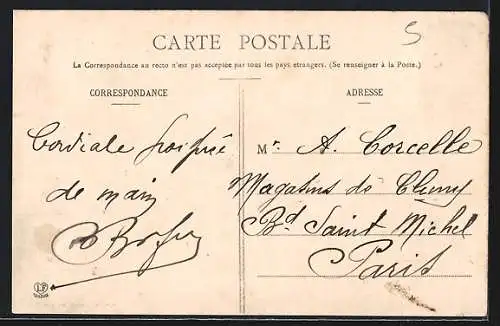 5
CARTE POSTALE
La Correspondance au recto n'est pas acceptée par tous les pays étrangers. (Se renseigner à la Poste.)
CORRESPONDANCE
Cordiale poignée
de main
ADRESSE
Mr. A. Corcelle
Magasins de Cluny
Bd Saint Michel
Paris